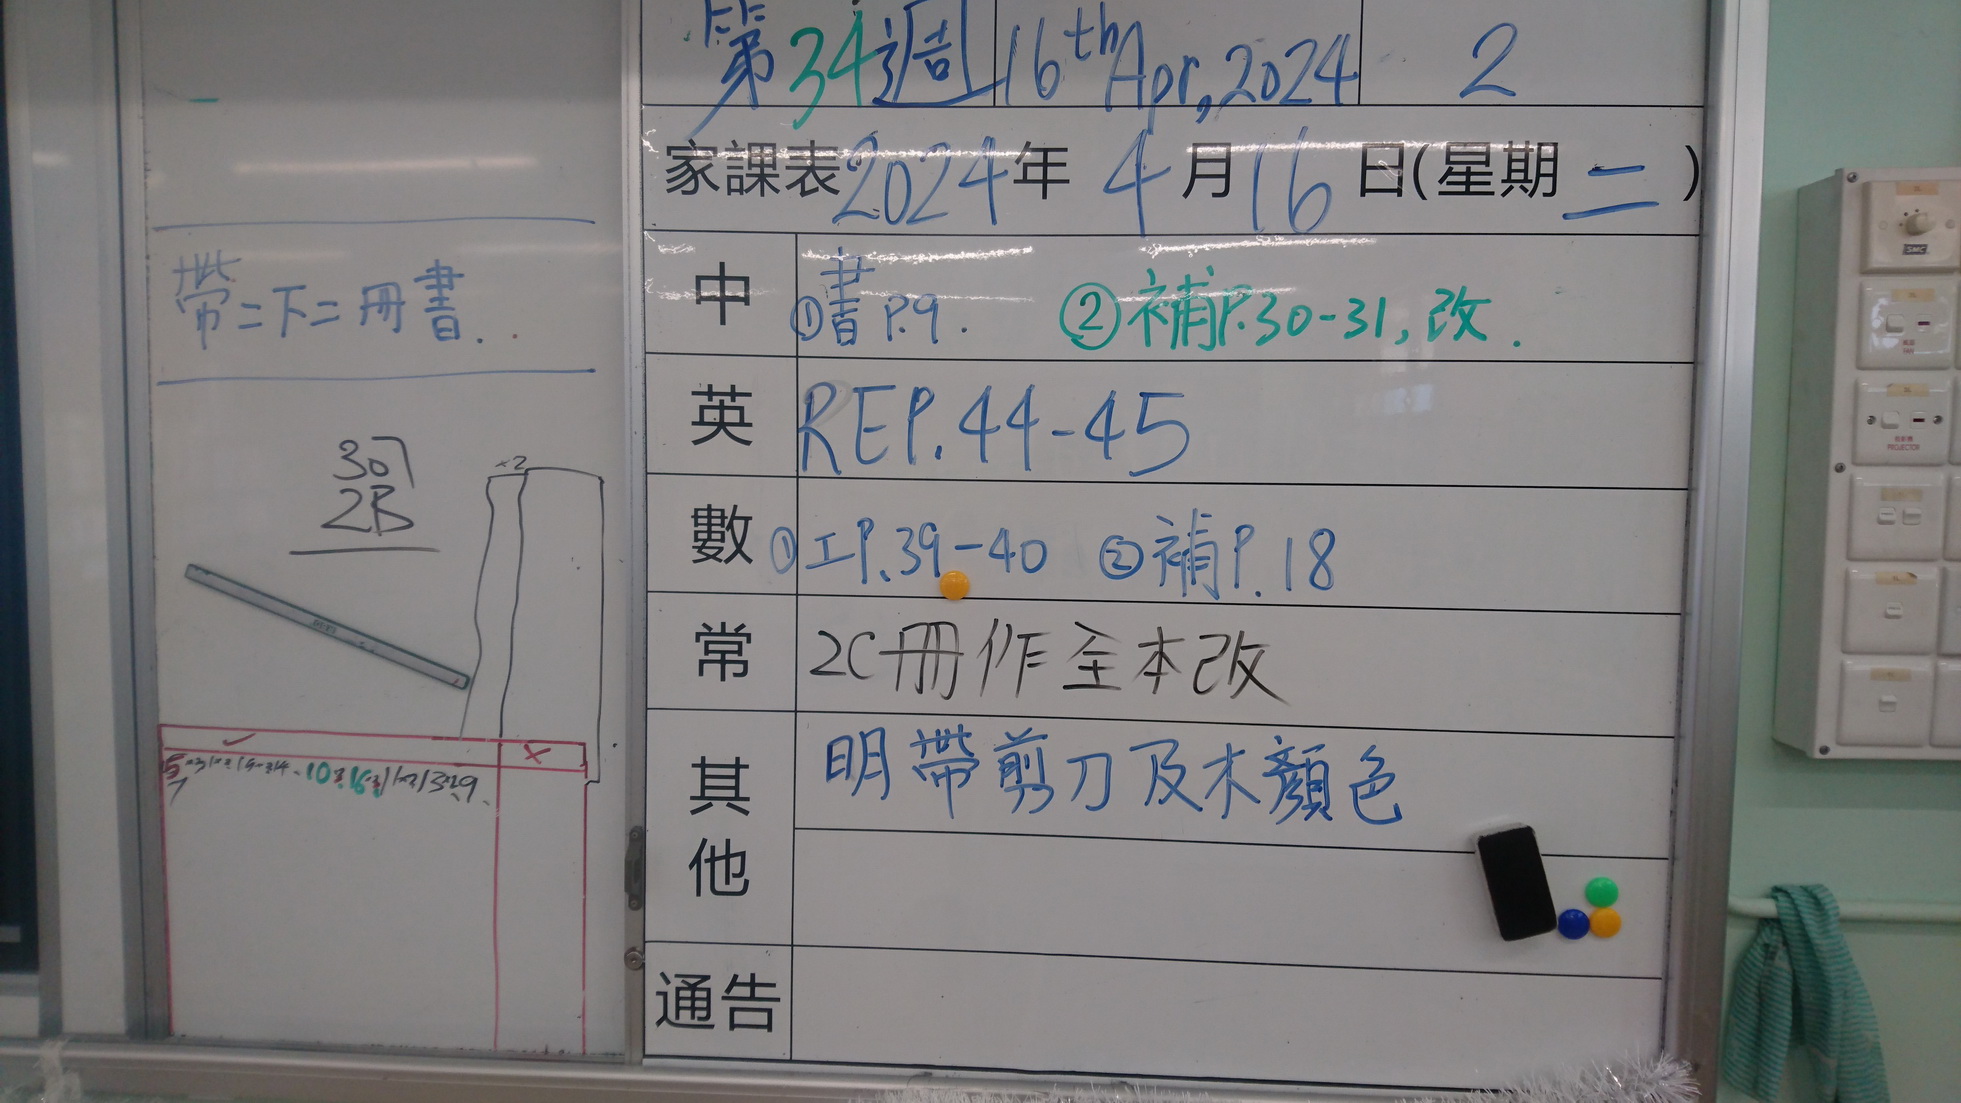 第34週 16th Apr, 2024 2
家課表2024年 4月16日(星期二)
中 ①書P.9. ②補P.30-31,改.
英 REP.44-45
數 ①工P.39-40 ②補P.18
常 2C冊作全本改
其他 明帶剪刀及木顏色
通告
帶二下二冊書.
307
2B
×2
✓ ×
SMC
PROJECTOR